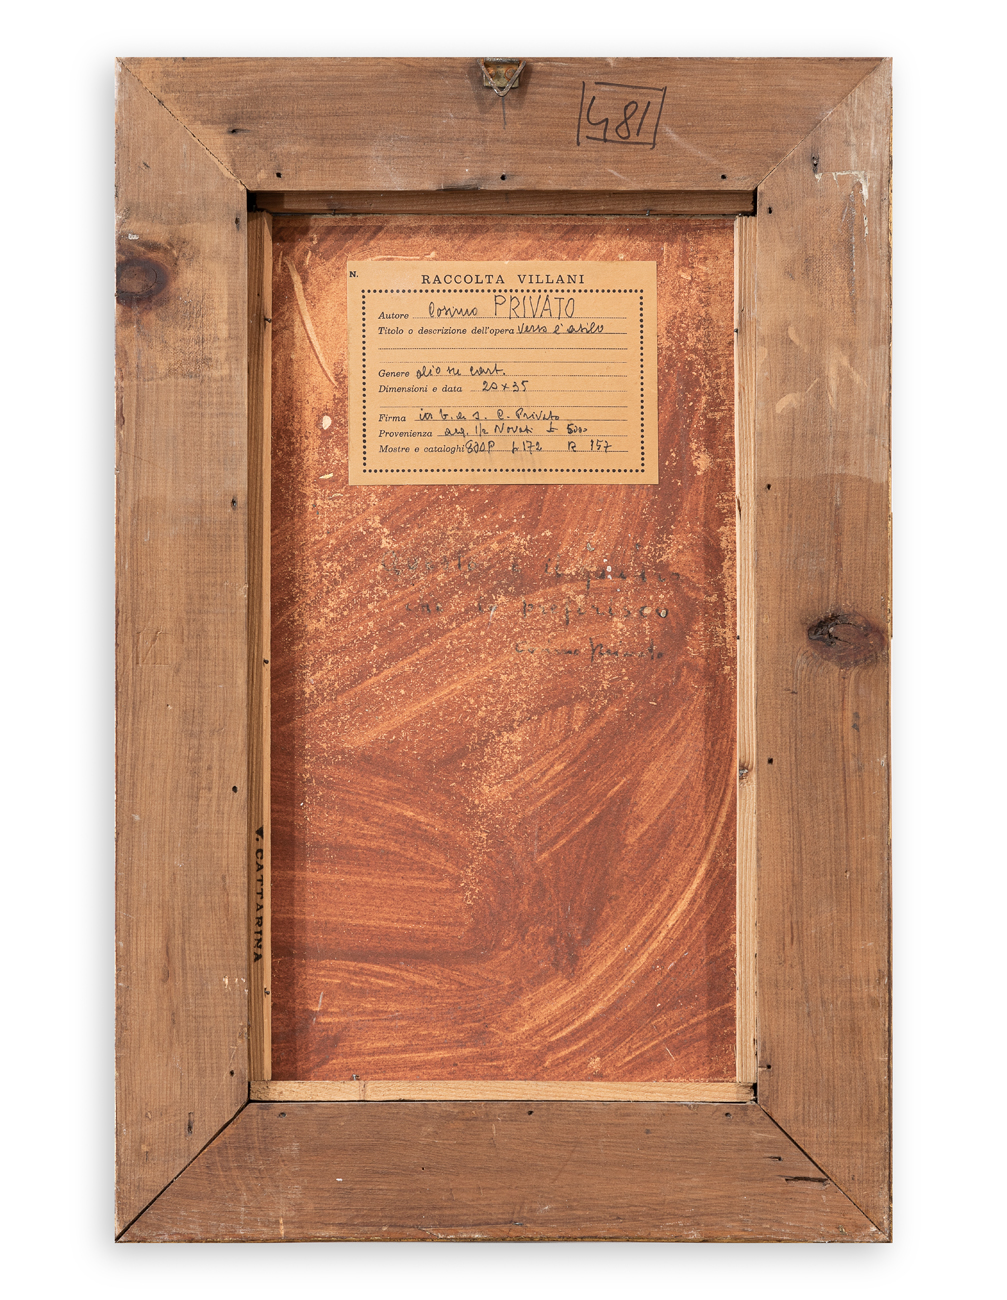 481
N.
RACCOLTA VILLANI
Autore Cosimo PRIVATO
Titolo o descrizione dell'opera verso l'asilo
Genere olio su cart.
Dimensioni e data 20 x 35
Firma in b. a s. C. Privato
Provenienza acq. 1/2 Novati £ 5000
Mostre e cataloghi p 172 157
che
Cosimo Privato
V. CATTARINA